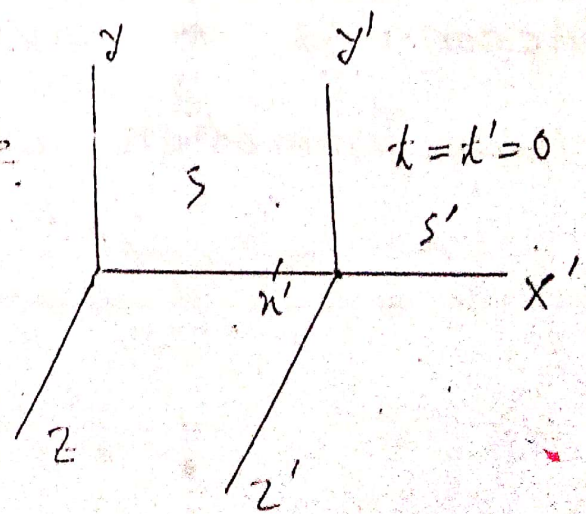 y y'
t = t' = 0
S
S'
x'
X'
Z
Z'